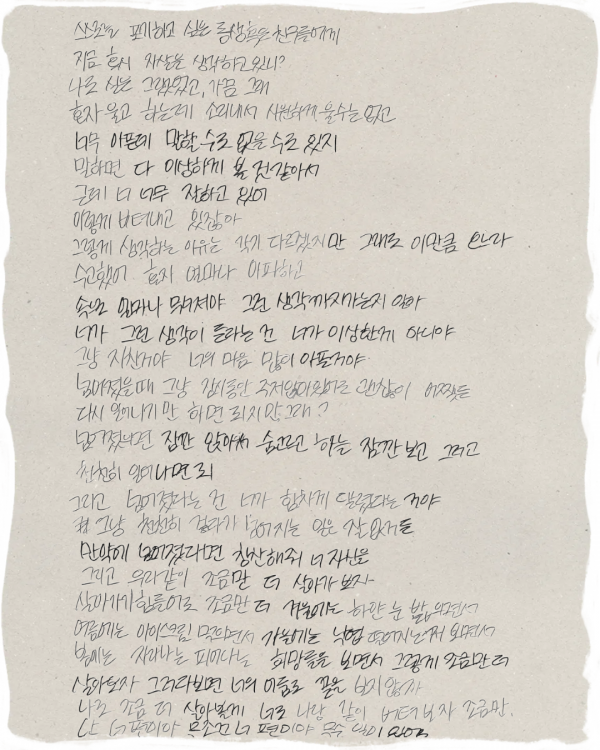 스스로를 포기하고 싶은 동생 혹은 친구들에게
지금 혹시 자살을 생각하고 있니?
나도 실은 그랬었고, 가끔 그래
혼자 울고 하는데 소리내서 시원하게 울수도 없고
너무 아픈데 말할 수도 없을 수도 있지
말하면 다 이상하게 볼 것 같아서
근데 너 너무 잘하고 있어
이렇게 버텨내고 있잖아
그렇게 생각하는 이유는 각기 다르겠지만 그래도 이만큼 오느라
수고했어 혼자 얼마나 아파하고
속은 얼마나 뭉쳐져야 그런 생각까지가는지 알아
너가 그런 생각이 든다는 건 너가 이상한게 아니야
그냥 지친거야 너의 마음 많이 아픈거야
넘어졌을때 그냥 잠시동안 주저앉아있어도 괜찮아 어쨌든
다시 일어나기만 하면 되지만 그래?
넘어졌으면 잠깐 앉아서 숨고르고 하늘 잠깐 보고 그러고
천천히 일어나면 돼
그리고 넘어졌다는 건 너가 힘차게 달렸다는 거야
그냥 천천히 걷다가 넘어지는 일은 잘 없거든
만약에 넘어졌다면 칭찬해줘 너 자신을
그리고 우리같이 조금만 더 살아가 보자
살아가기 힘들어도 조금만 더 겨울에는 하얀 눈 밟으면서
여름에는 아이스크림 먹으면서 가을에는 낙엽 떨어지는거 보면서
봄에는 자라나는 피어나는 희망들을 보면서 그렇게 조금만 더
살아보자 그러다보면 너의 어둠도 끝을 보지 않을까
나도 조금 더 살아볼게 너도 나랑 같이 버텨보자 조금만.
난 너 편이야 무조건 너 편이야